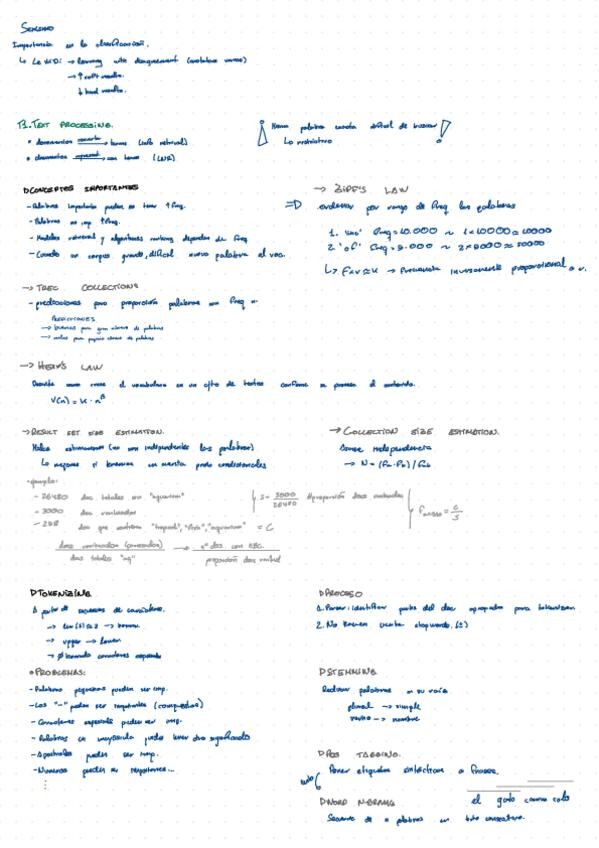 SEMINARIO
Importancia en la clasificación.
→ learning with disagreement
→ ↑ soft
↓ hard
T1. TEXT PROCESSING.
• documentos → convertir → terms (info retrieval)
• documentos → con terms
¡ Misma palabra difícil de buscar !
Lo
▷ CONCEPTOS IMPORTANTES
- Palabras importantes pueden no tener ↑ freq.
- Palabras no imp ↑ freq.
- Modelos retrieval y algoritmos ranking dependen de freq
- Cuando un corpus grande, difícil nueva palabra al voc.
→ ZIPF'S LAW
=D ordenar por rango de freq las palabras
1. 'the' freq = 10.000 ~ 1x10000 ≈ 10000
2. 'of' freq = 5.000 ~ 2x5000 ≈ 10000
↳ F x r ≈ k → frecuencia inversamente proporcional a r.
→ TREC COLLECTIONS
- predicciones para proporción palabras con freq n.
PREDICCIONES
→ buenas para gran número de palabras
→ malas para pequeño número de palabras
→ HEAP'S LAW
Describe como crece el vocabulario en un cjto de textos conforme se procesa el contenido.
V(n) = k · n^β
→ RESULT SET SIZE ESTIMATION.
Malas estimaciones (no son independientes las palabras)
Lo mejoras si tenemos en cuenta prob condicionales
• ejemplo:
- 26480 docs totales en "aquarium"
- 3000 docs rankeados
- 258 docs que contienen "tropical", "fish", "aquarium" = C
S = 3000 / 26480 proporción docs
f = C / S
docs rankeados / docs totales "aq" → nº docs con ABC / proporción docs
→ COLLECTION SIZE ESTIMATION.
Asume independencia
→ N = (fa · fb) / fab
▷ TOKENIZING
A partir de secuencia de caracteres.
→ len(s) ≤ 2 → borrar
→ upper → lower
→ caracteres especiales
• PROBLEMAS:
- Palabras pequeñas pueden ser imp.
- Los "-" pueden ser importantes (compuestos)
- Caracteres especiales pueden ser imp.
- Palabras en mayúscula puede tener otro significado
- Apostrofes pueden ser imp.
- Números pueden ser importantes...
▷ PROCESO
1. Parser: identificar partes del doc apropiadas para tokenizar
2. No tienen cuenta stopwords.
▷ STEMMING
Reducir palabras a su raíz
plural → simple
verbo → nombre
▷ POS TAGGING.
Poner etiquetas sintácticas a frases.
el gato come
▷ WORD N-GRAMS
Secuencia de n palabras en texto consecutivas.